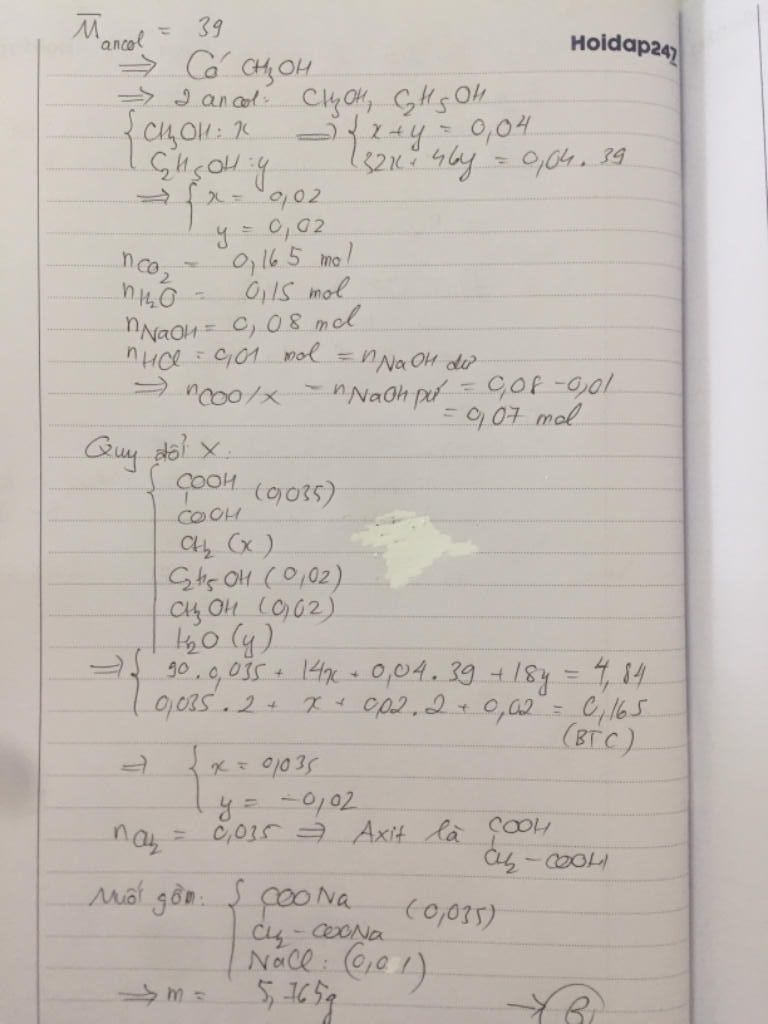 M̅ancol = 39
Hoidap247
⟹ Có CH3OH
⟹ 2 ancol: CH3OH, C2H5OH
{ CH3OH: x ⟹ { x + y = 0,04
C2H5OH: y 32x + 46y = 0,04 . 39
⟹ { x = 0,02
y = 0,02
nCO2 = 0,165 mol
nH2O = 0,15 mol
nNaOH = 0,08 mol
nHCl = 0,01 mol = nNaOH dư
⟹ nCOO/X = nNaOH pứ = 0,08 - 0,01
= 0,07 mol
Quy đổi X:
{ COOH
COOH (0,035)
CH2 (x)
C2H5OH (0,02)
CH3OH (0,02)
H2O (y)
⟹ { 90 . 0,035 + 14x + 0,04 . 39 + 18y = 4,84
0,035 . 2 + x + 0,02 . 2 + 0,02 = 0,165
(BTC)
⟹ { x = 0,035
y = -0,02
nCH2 = 0,035 ⟹ Axit là COOH
CH2 - COOH
Muối gồm: { COONa (0,035)
CH2 - COONa
NaCl: (0,01)
⟹ m = 5,765g → B